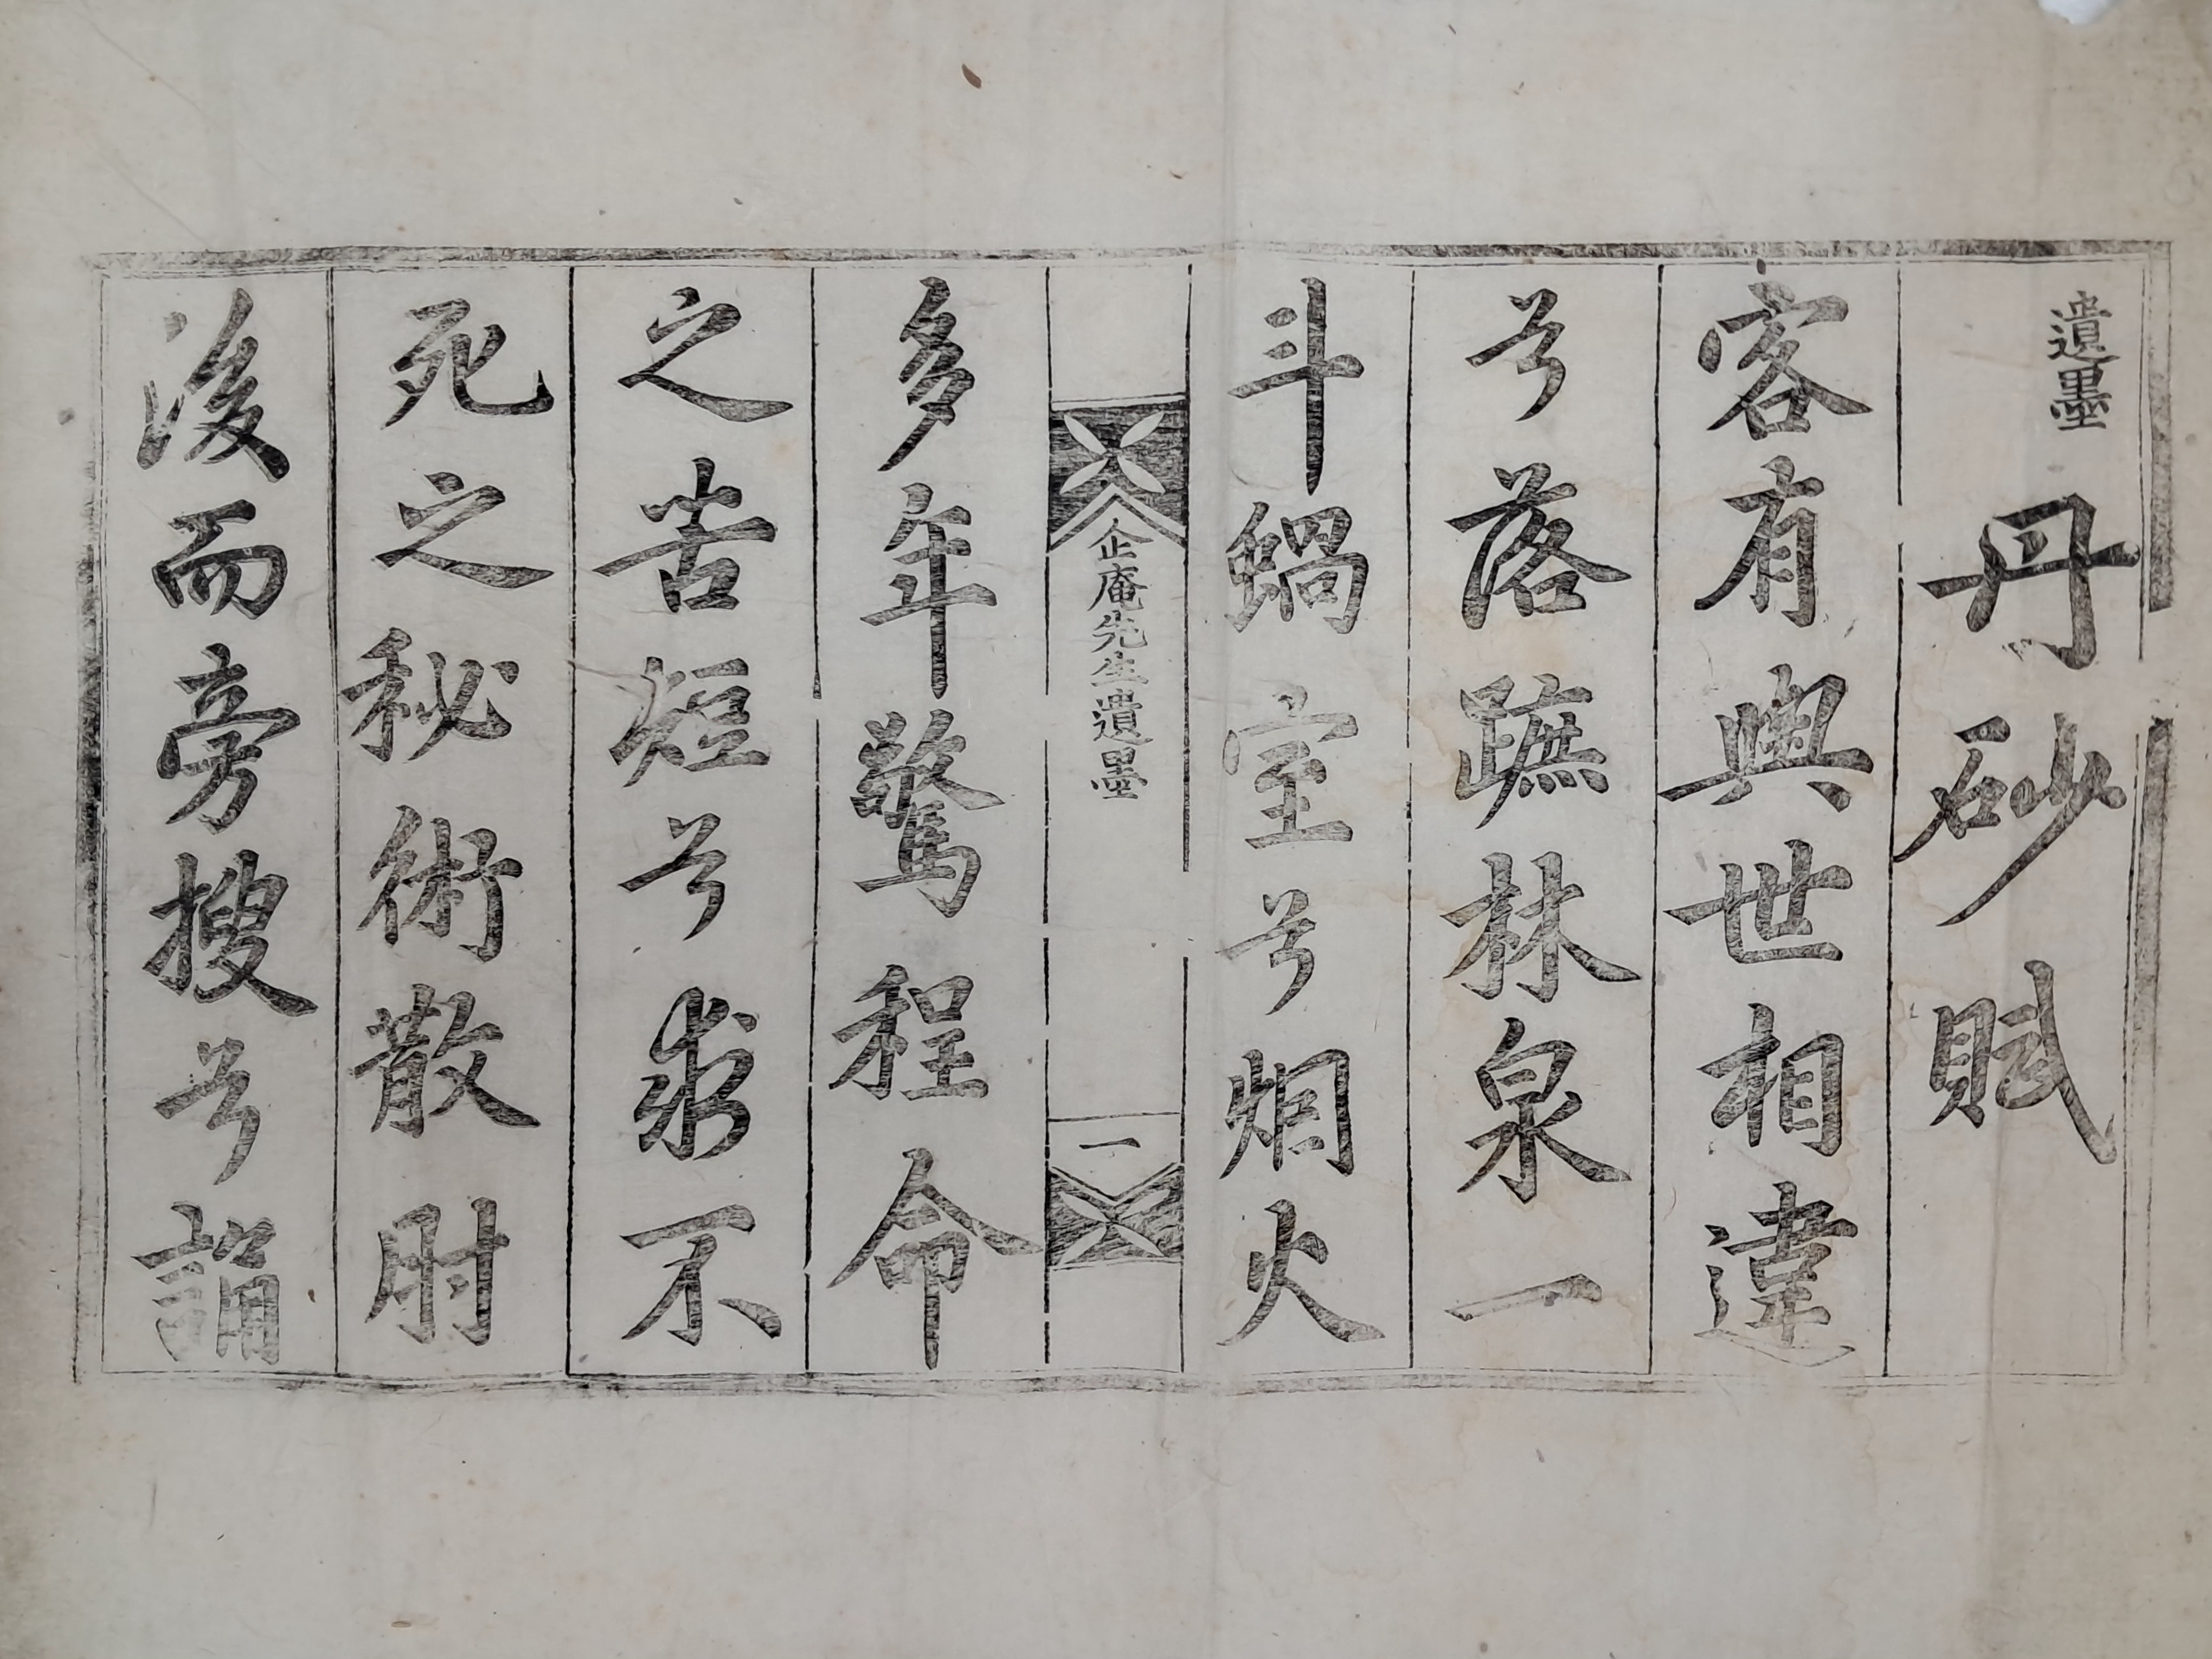 遺墨
丹砂賦
客有與世相違
兮落蹠林泉一
斗蝸室兮烟火
企庵先生遺墨
一
多年驚程命
之苦短兮求不
死之秘術散肘
後而旁搜兮誦